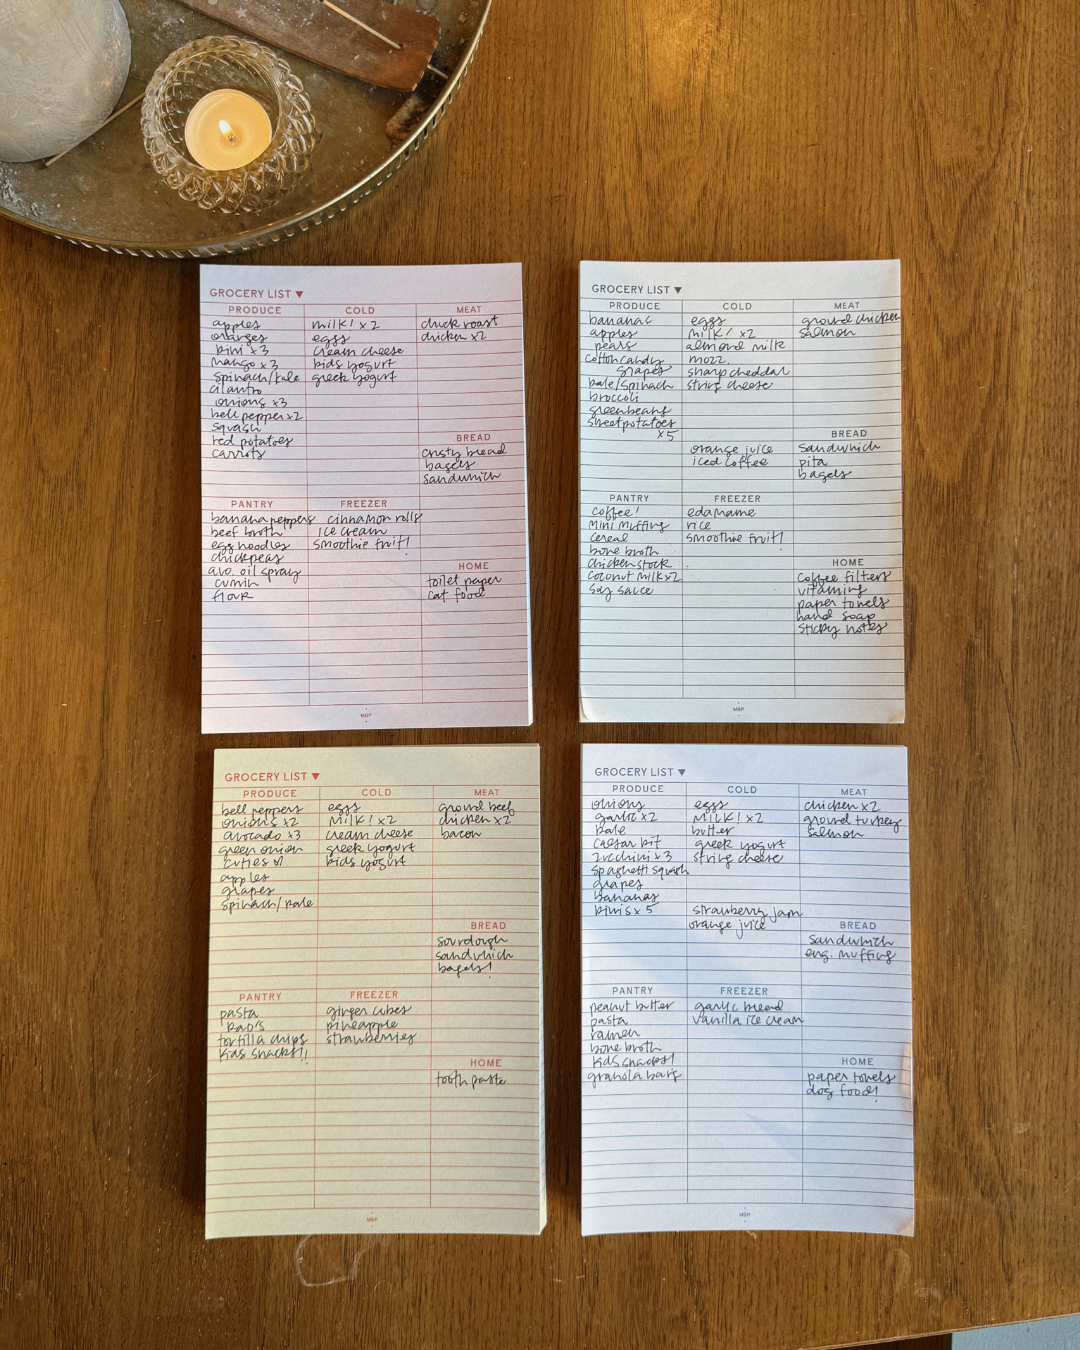 GROCERY LIST ▼
PRODUCE
apples
oranges
kiwi x3
mango x3
spinach/kale
cilantro
onions x3
bell pepper x2
squash
red potatoes
carrots
COLD
milk! x2
eggs
cream cheese
kids yogurt
greek yogurt
MEAT
chuck roast
chicken x2
BREAD
crusty bread
bagels
sandwhich
PANTRY
banana peppers
beef broth
egg noodles
chickpeas
avo. oil spray
cumin
flour
FREEZER
cinnamon rolls
ice cream
smoothie fruit!
HOME
toilet paper
cat food
MBP
GROCERY LIST ▼
PRODUCE
bananas
apples
pears
cotton candy
grapes
kale/spinach
broccoli
green beans
sweet potatoes
x5
COLD
eggs
milk! x2
almond milk
mozz.
sharp cheddar
string cheese
orange juice
iced coffee
MEAT
ground chicken
salmon
BREAD
sandwhich
pita
bagels
PANTRY
coffee!
mini muffins
cereal
bone broth
chicken stock
coconut milk x2
soy sauce
FREEZER
edamame
rice
smoothie fruit!
HOME
coffee filters
vitamins
paper towels
hand soap
sticky notes
MBP
GROCERY LIST ▼
PRODUCE
bell peppers
onions x2
avocado x3
green onion
cuties
apples
grapes
spinach/kale
COLD
eggs
milk! x2
cream cheese
greek yogurt
kids yogurt
MEAT
ground beef
chicken x2
bacon
BREAD
sourdough
sandwhich
bagels!
PANTRY
pasta
Rao's
tortilla chips
kids snacks!!
FREEZER
ginger cubes
pineapple
strawberries
HOME
tooth paste
MBP
GROCERY LIST ▼
PRODUCE
onions
garlic x2
kale
caesar kit
zucchini x3
spaghetti squash
grapes
bananas
kiwis x5
COLD
eggs
milk! x2
butter
greek yogurt
string cheese
strawberry jam
orange juice
MEAT
chicken x2
ground turkey
salmon
BREAD
sandwhich
eng. muffins
PANTRY
peanut butter
pasta
ramen
bone broth
kids snacks!
granola bars
FREEZER
garlic bread
vanilla ice cream
HOME
paper towels
dog food!
MBP